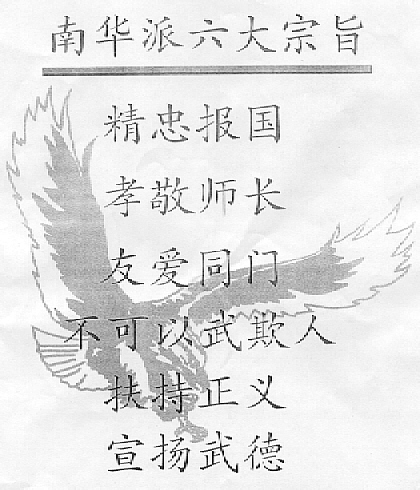 南华派六大宗旨
精忠报国
孝敬师长
友爱同门
不可以武欺人
扶持正义
宣扬武德